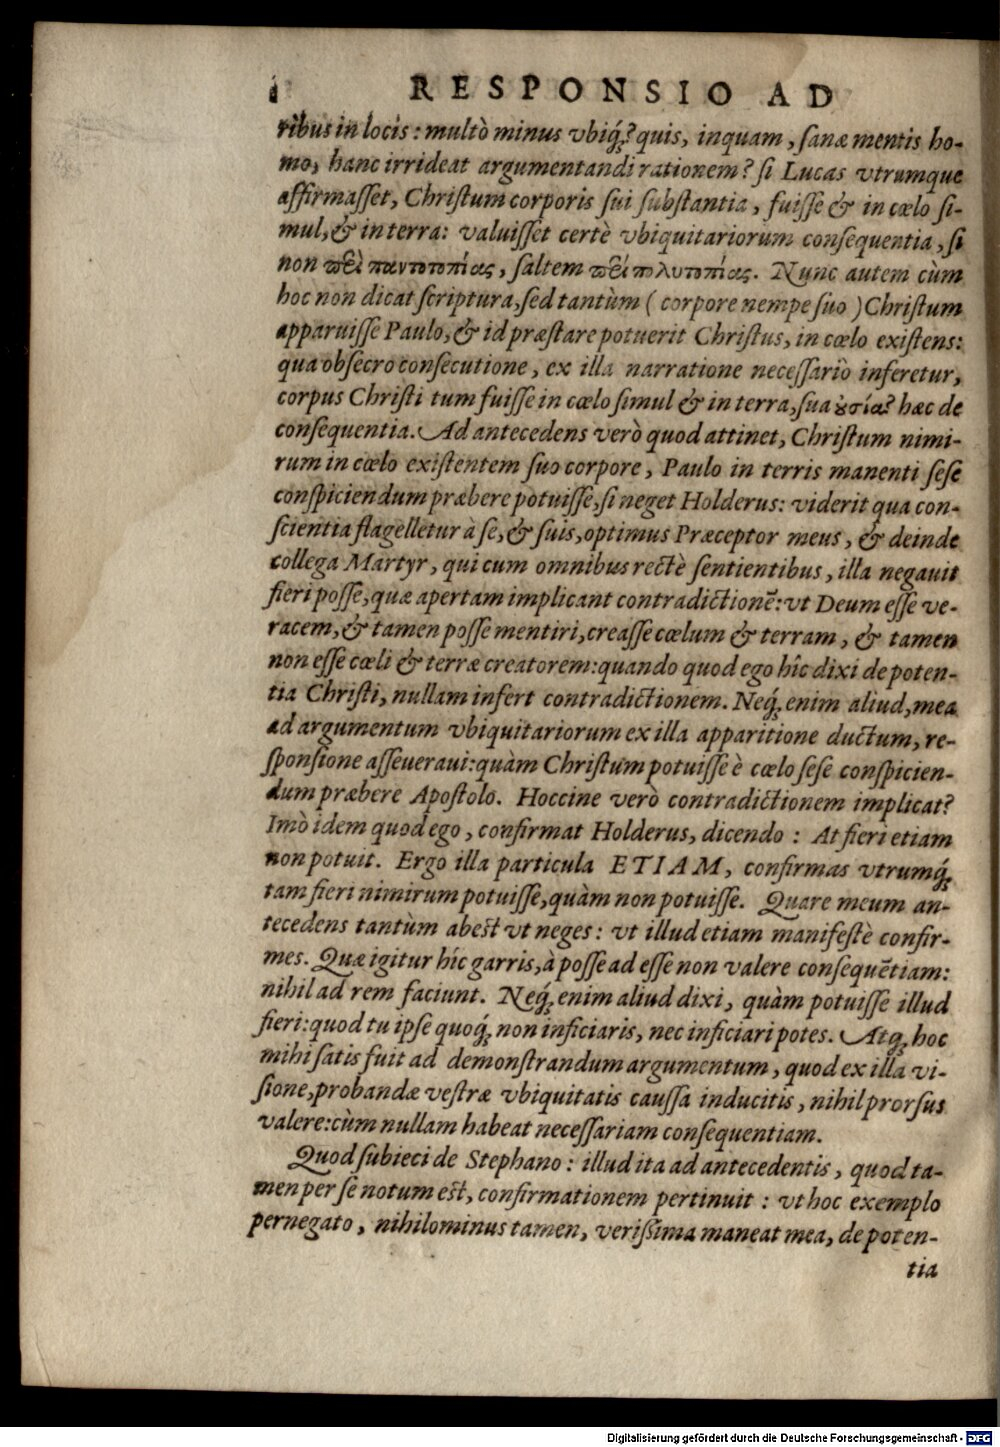 RESPONSIO AD
ribus in locis: multò minus vbiq́;? quis, inquam, ſanæ mentis ho-
mo, hanc irrideat argumentandi rationem? ſi Lucas vtrumque
affirmaſſet, Chriſtum corporis ſui ſubſtantia, fuiſſe & in cœlo ſi-
mul, & in terra: valuiſſet certè vbiquitariorum conſequentia, ſi
non περὶ παντοτοπίας, ſaltem περὶ πολυτοπίας. Nunc autem cùm
hoc non dicat ſcriptura, ſed tantùm (corpore nempe ſuo) Chriſtum
apparuiſſe Paulo, & id præſtare potuerit Chriſtus, in cœlo exiſtens:
qua obſecro conſecutione, ex illa narratione neceſſariò inferetur,
corpus Chriſti tum fuiſſe in cœlo ſimul & in terra, ſua ȣσίᾳ? hæc de
conſequentia. Ad antecedens verò quod attinet, Chriſtum nimi-
rum in cœlo exiſtentem ſuo corpore, Paulo in terris manenti ſeſe
conſpiciendum præbere potuiſſe, ſi neget Holderus: viderit qua con-
ſcientia flagelletur à ſe, & ſuis, optimus Præceptor meus, & deinde
collega Martyr, qui cum omnibus rectè ſentientibus, illa negauit
fieri poſſe, quæ apertam implicant contradictionē: vt Deum eſſe ve-
racem, & tamen poſſe mentiri, creaſſe cœlum & terram, & tamen
non eſſe cœli & terræ creatorem: quando quod ego hîc dixi de poten-
tia Chriſti, nullam infert contradictionem. Neq́; enim aliud, mea
ad argumentum vbiquitariorum ex illa apparitione ductum, re-
ſponſione aſſeueraui: quàm Chriſtum potuiſſe è cœlo ſeſe conſpicien-
dum præbere Apoſtolo. Hoccine verò contradictionem implicat?
Imò idem quod ego, confirmat Holderus, dicendo: At fieri etiam
non potuit. Ergo illa particula ETIAM, confirmas vtrumq́;
tam fieri nimirum potuiſſe, quàm non potuiſſe. Quare meum an-
tecedens tantùm abeſt vt neges: vt illud etiam manifeſtè confir-
mes. Quæ igitur hîc garris, à poſſe ad eſſe non valere conſequētiam:
nihil ad rem faciunt. Neq́; enim aliud dixi, quàm potuiſſe illud
fieri: quod tu ipſe quoq́; non inficiaris, nec inficiari potes. Atq; hoc
mihi ſatis fuit ad demonſtrandum argumentum, quod ex illa vi-
ſione, probandæ veſtræ vbiquitatis cauſſa inducitis, nihil prorſus
valere: cùm nullam habeat neceſſariam conſequentiam.
Quod ſubieci de Stephano: illud ita ad antecedentis, quod ta-
men per ſe notum eſt, confirmationem pertinuit: vt hoc exemplo
pernegato, nihilominus tamen, veriſſima maneat mea, de poten-
tia
Digitalisierung gefördert durch die Deutsche Forschungsgemeinschaft - DFG